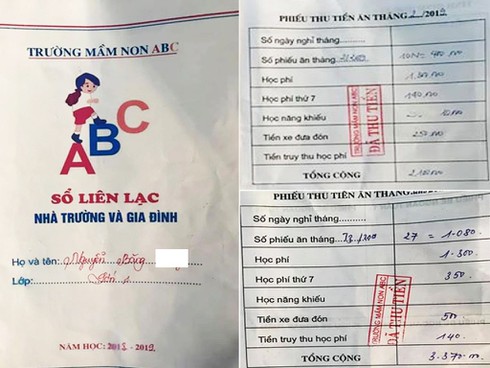 TRƯỜNG MẦM NON ABC
ABC
SỔ LIÊN LẠC
NHÀ TRƯỜNG VÀ GIA ĐÌNH
Họ và tên: Nguyễn Băng
Lớp:
NĂM HỌC: 2018 - 2019
PHIẾU THU TIỀN ĂN THÁNG 2/2019
Số ngày nghỉ tháng
Số phiếu ăn tháng
Học phí 1.300.000
Học phí thứ 7
Học năng khiếu
Tiền xe đưa đón 250.000
Tiền truy thu học phí
TỔNG CỘNG
TRƯỜNG MẦM NON ABC
ĐÃ THU TIỀN
PHIẾU THU TIỀN ĂN THÁNG
Số ngày nghỉ tháng..........
Số phiếu ăn tháng 27 = 1.080.
Học phí 1.300.
Học phí thứ 7 350.
Học năng khiếu
Tiền xe đưa đón 500
Tiền truy thu học phí 140.
TỔNG CỘNG 3.370.
TRƯỜNG MẦM NON ABC
ĐÃ THU TIỀN